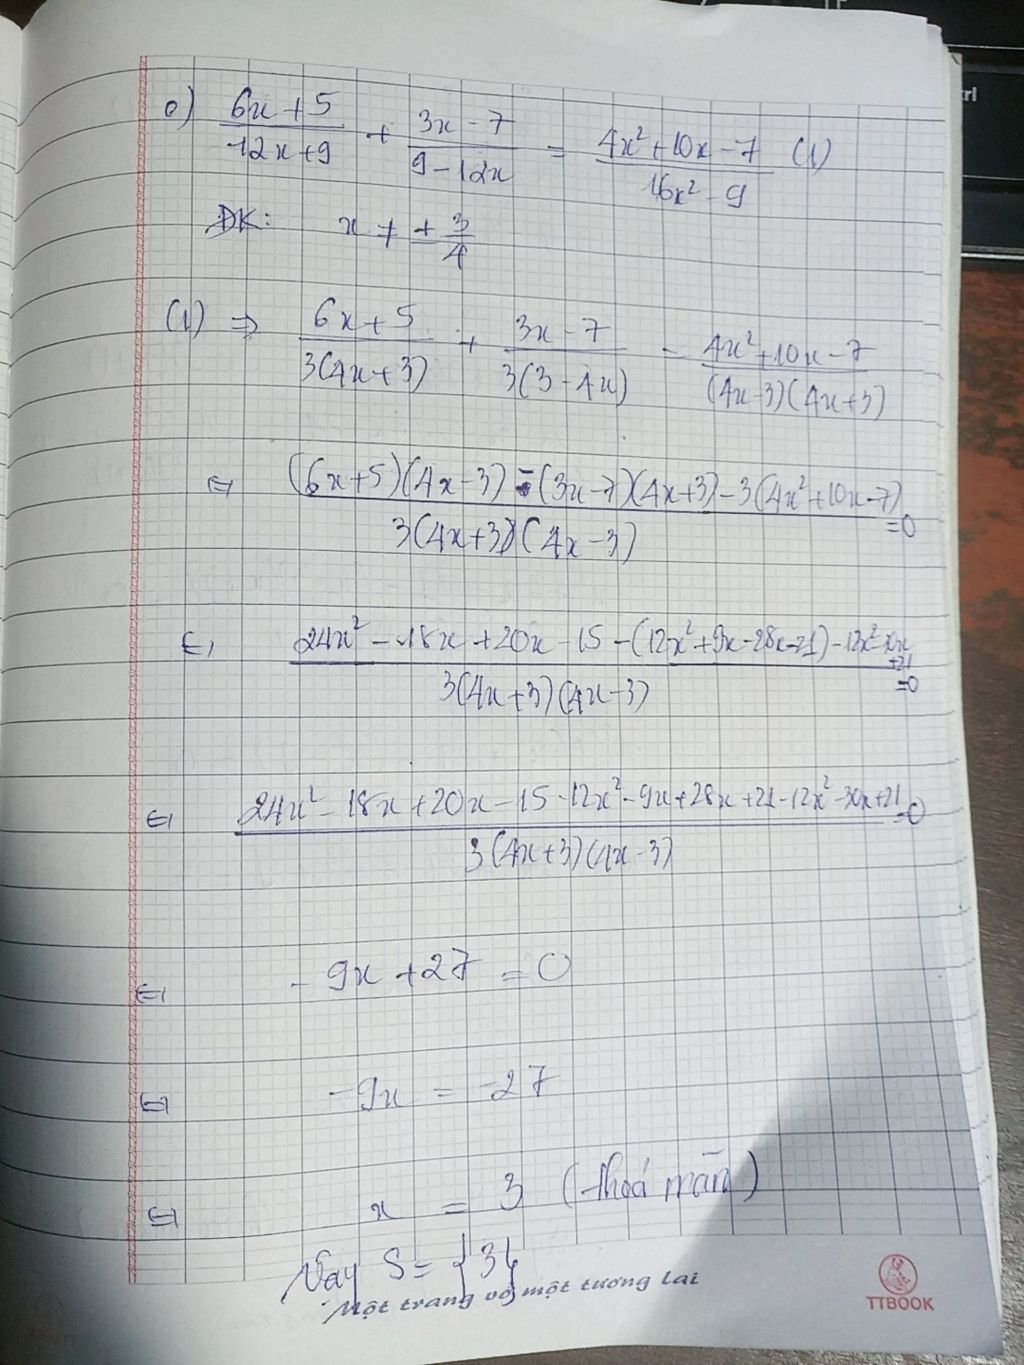 c) (6x + 5)/(12x + 9) + (3x - 7)/(9 - 12x) = (4x² + 10x - 7)/(16x² - 9) (1)
ĐK: x ≠ ± 3/4
(1) ⇒ (6x + 5)/(3(4x + 3)) + (3x - 7)/(3(3 - 4x)) - (4x² + 10x - 7)/((4x - 3)(4x + 3))
⇔ ((6x + 5)(4x - 3) - (3x - 7)(4x + 3) - 3(4x² + 10x - 7))/(3(4x + 3)(4x - 3)) = 0
⇔ (24x² - 18x + 20x - 15 - (12x² + 9x - 28x - 21) - 12x² - 30x + 21)/(3(4x + 3)(4x - 3)) = 0
⇔ (24x² - 18x + 20x - 15 - 12x² - 9x + 28x + 21 - 12x² - 30x + 21)/(3(4x + 3)(4x - 3)) = 0
⇔ - 9x + 27 = 0
⇔ -9x = -27
⇔ x = 3 (thoả mãn)
Vay S = {3}
Một trang vở một tương lai
TTBOOK